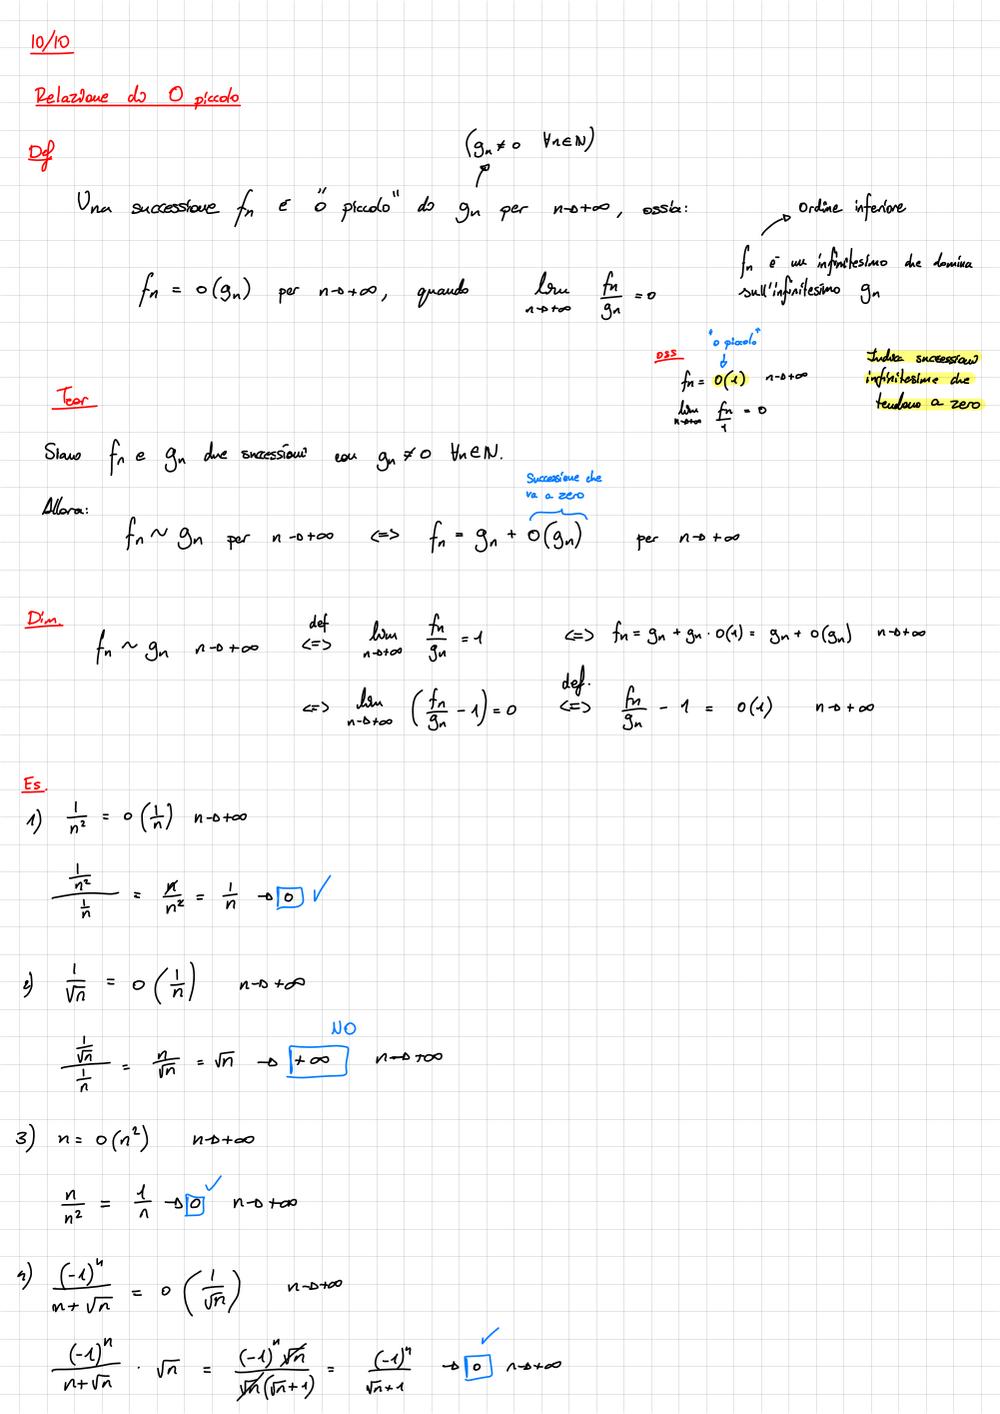 10/10
Relazione di O piccolo
Def
(gₙ ≠ 0 ∀n∈N)
Una successione fₙ è "o piccolo" di gₙ per n→+∞, ossia:
fₙ = o(gₙ) per n→+∞, quando lim n→+∞ fₙ/gₙ = 0
ordine inferiore
fₙ è un infinitesimo che domina
sull'infinitesimo gₙ
oss
"o piccolo"
fₙ = o(1) n→+∞
lim n→+∞ fₙ/1 = 0
Indica successioni
infinitesime che
tendono a zero
Teor
Siano fₙ e gₙ due successioni con gₙ ≠ 0 ∀n∈N.
Successione che
va a zero
Allora:
fₙ ~ gₙ per n→+∞ <=> fₙ = gₙ + o(gₙ) per n→+∞
Dim.
fₙ ~ gₙ n→+∞ def <=> lim n→+∞ fₙ/gₙ = 1 <=> fₙ = gₙ + gₙ · o(1) = gₙ + o(gₙ) n→+∞
<=> lim n→+∞ (fₙ/gₙ - 1) = 0 def. <=> fₙ/gₙ - 1 = o(1) n→+∞
Es.
1) 1/n² = o(1/n) n→+∞
(1/n²)/(1/n) = n/n² = 1/n → 0 ✓
2) 1/√n = o(1/n) n→+∞
NO
(1/√n)/(1/n) = n/√n = √n → +∞ n→+∞
3) n = o(n²) n→+∞
n/n² = 1/n → 0 ✓ n→+∞
4) (-1)ⁿ/(n+√n) = o(1/√n) n→+∞
(-1)ⁿ/(n+√n) · √n = (-1)ⁿ√n/(√n(√n+1)) = (-1)ⁿ/(√n+1) → 0 ✓ n→+∞